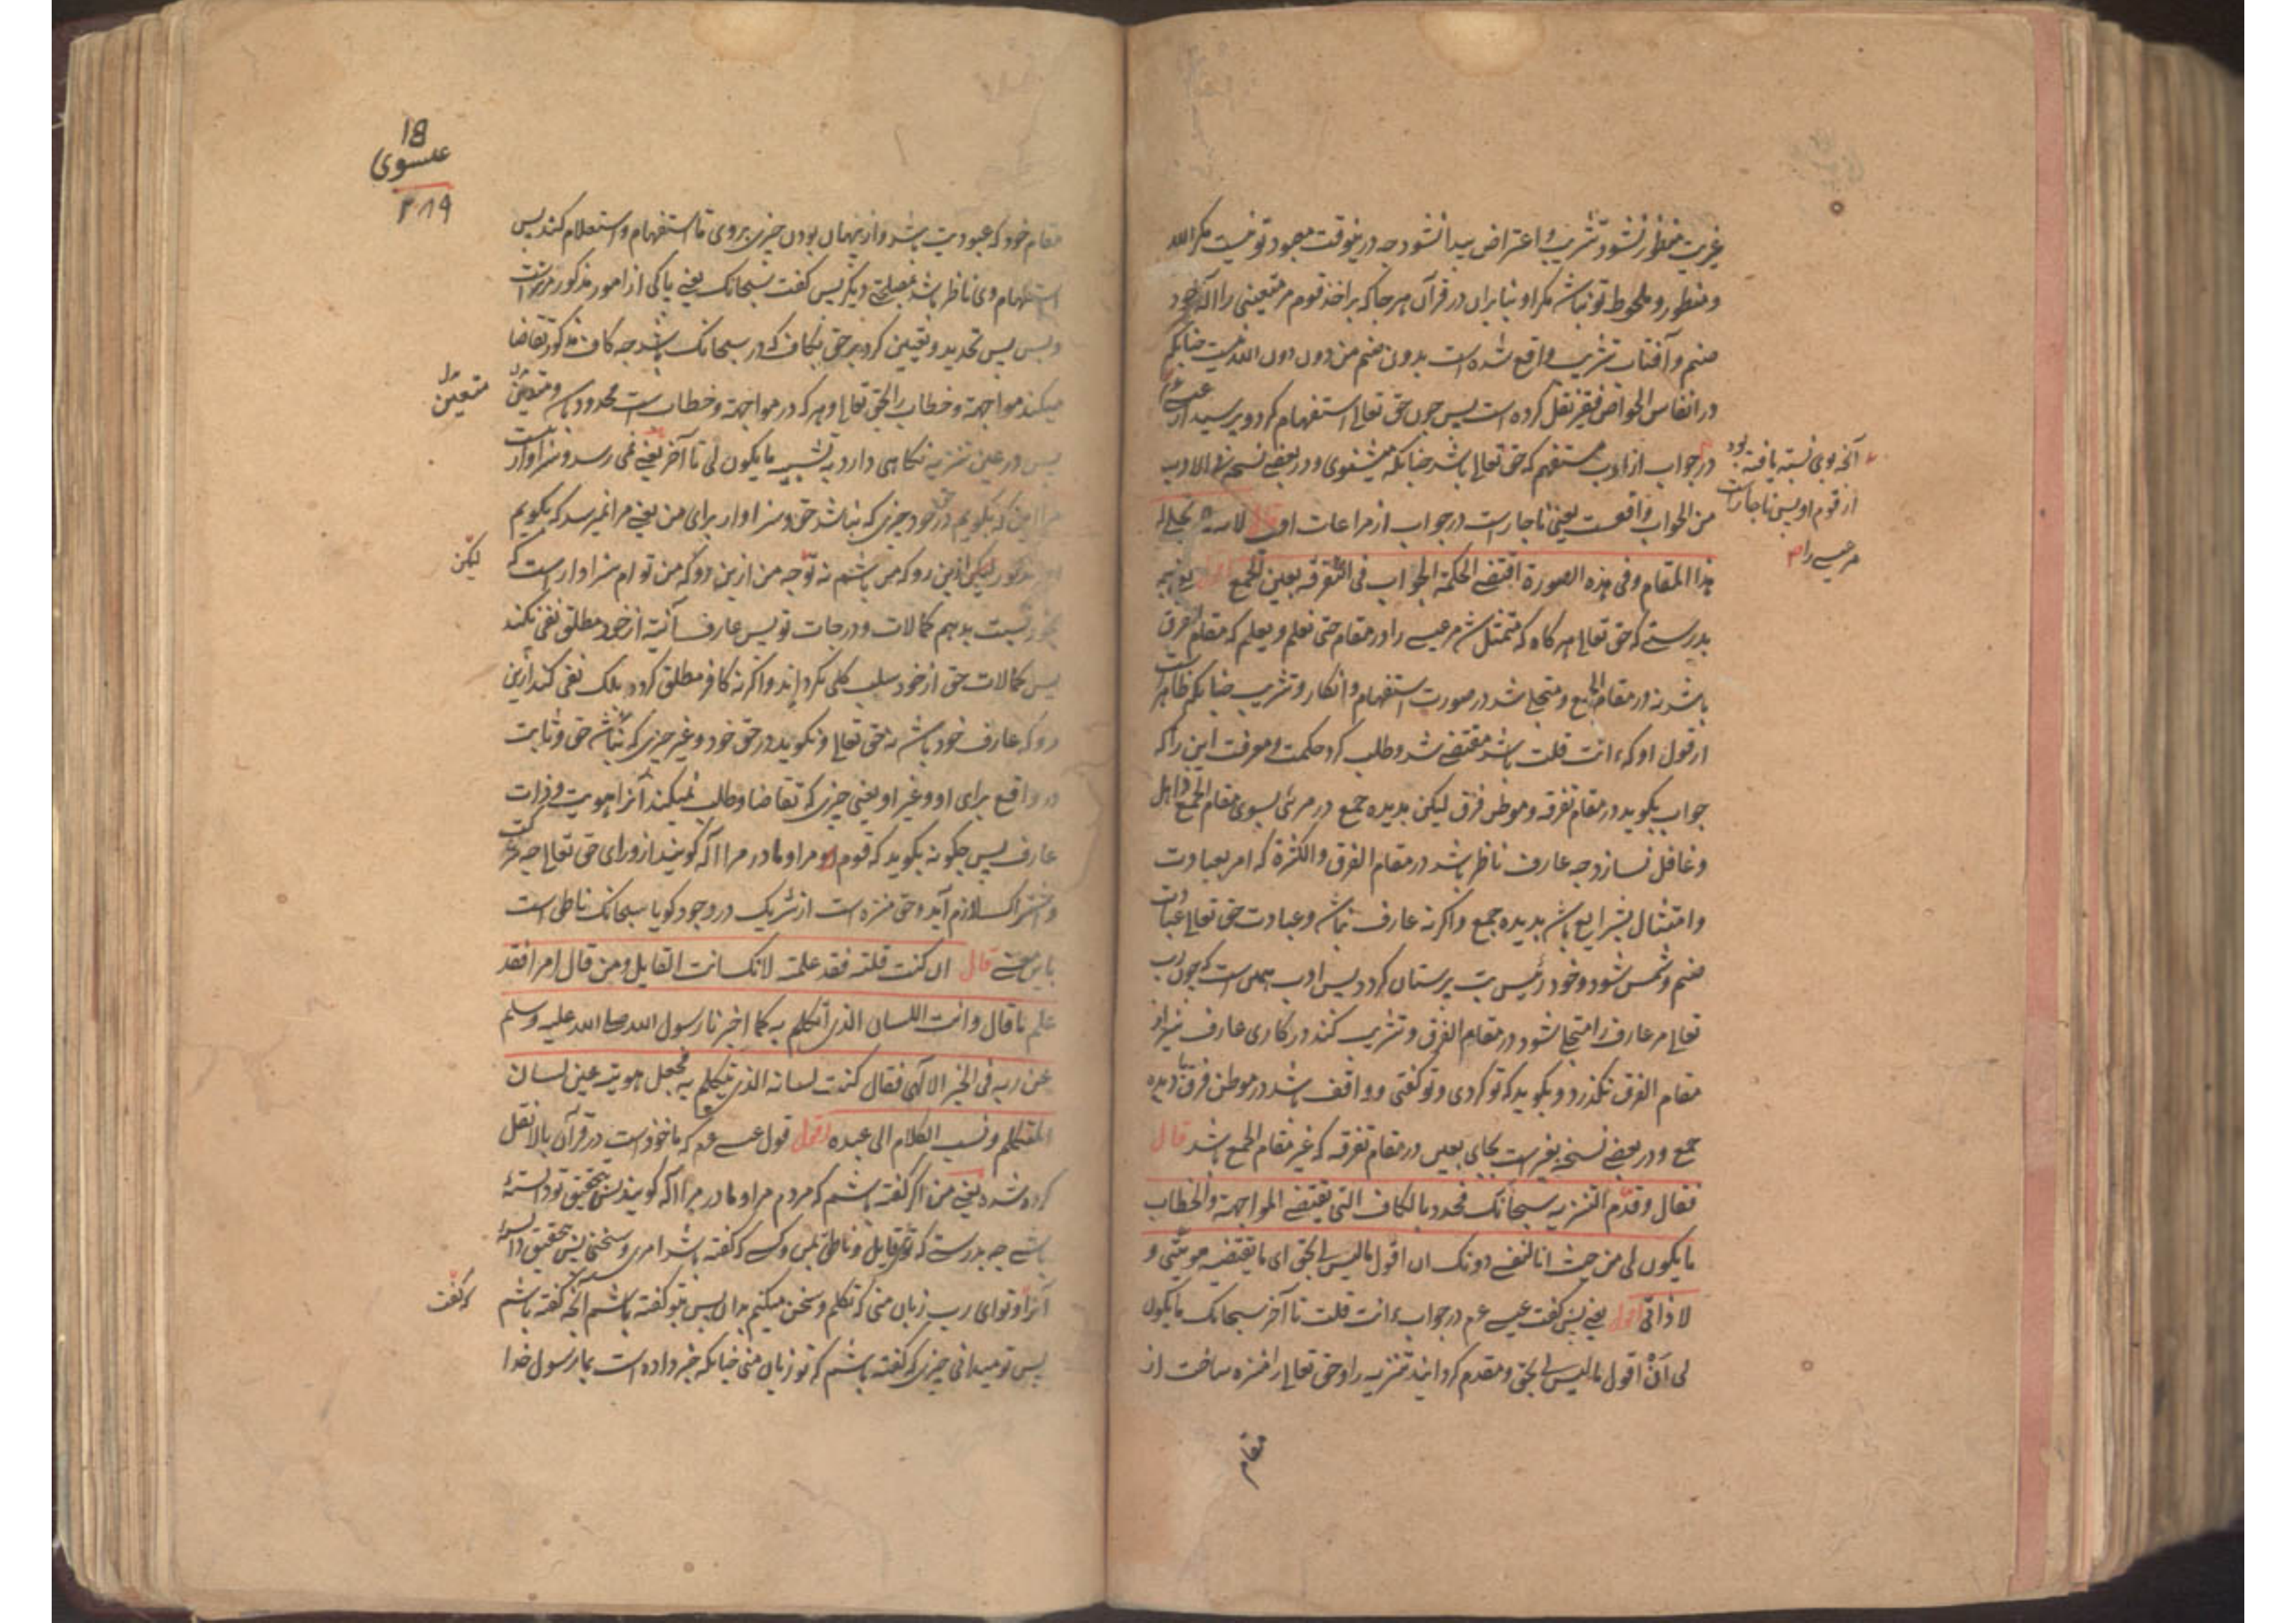 غیریت منظور نشود تثریب و اعتراض پیدا نشود چه درینوقت معبود تو نیست مکر الله
و منظور و ملحوظ تو نباشد مکر او بنابران در قرآن هر جا که بر اخذ قوم مر متعینی را اله خود
صنم و آفتاب تثریب واقع شده است بدون ضم من دون الله نیست چنانکه
در انفاس الخواص فقیر نقل کرده است پس چون حق تعالی استفهام کرد و پرسید از عیسی
در جواب از ادب مستفهم که حق تعالی باشد چنانکه میشنوی و در بعضی نسخه فی الادب
من الجواب واقعست یعنی ناچارست در جواب از مراعات ادب لانه لما تجلی له
هذا المقام و فی هذه الصورة اقتضی الحکمة الجواب فی التفرقة بعین الجمع
بدرستی که حق تعالی هر کاه که متمثل شد مر عیسی را در مقام حتی نعلم و یعلم که مقام الفرق
باشد نه در مقام الجمع و متجلی شد در صورت استفهام و انکار و تثریب چنانکه ظاهر است
از قول او که ءانت قلت باشد مقتضی شد و طلب کرد حکمت و معرفت این را که
جواب بکوید در مقام تفرقه و موطن فرق لیکن بدیده جمع در مرئی بسوی مقام الجمع
و غافل نسازد چه عارف ناظر باشد در مقام الفرق و الکثرة که امر بعبادت
و امتثال بشرایع باشد بدیده جمع و اکر نه عارف نباشد و عبادت حق تعالی عبادت
صنم و شمس شود و خود رئیس بت پرستان کردد پس ادب همین است که چون رب
تعالی مر عارف را متجلی شود در مقام الفرق و تثریب کند در کاری عارف نیز از
مقام الفرق نکذرد و بکوید که تو کردی و تو کفتی و واقف باشد در موطن فرق بادیده
جمع و در بعضی نسخه بغیر است بجای بعین در مقام تفرقه که غیر مقام الجمع باشد قال
فقال و قدّم التنزیه سبحانک فحدد بالکاف التی تقتضی المواجهة و الخطاب
ما یکون لی من حیث انا لنفسی دونک ان اقول ما لیس لی بحق ای ما یقتضیه هویتی و
لا ذاتی اقول یعنی پس کفت عیسی عم در جواب ءانت قلت تا آخر سبحانک ما یکون
لی أنْ اقول ما لیس لی بحق و مقدم کردانید تنزیه را و حق تعالی را منزه ساخت از
مقام
آنچه بوی نسبته یافته بود
از قوم او پس ناچار است
مر عیسی را
18
عیسوی
۲۸۹
مقام خود که عبودیت باشد و از پنهان بودن چیزی بر وی تا استفهام و استعلام کند پس
استفهام وی ناظر باشد بمصلحتی دیکر پس کفت سبحانک یعنی پاکی از امور مذکور مر تراست
و بس پس تحدید و تعیین کرد بر حق بکاف که در سبحانک باشد چه کاف مذکور تقاضا
میکند مواجهة و خطاب را بحق تعالی و هر که در مواجهة و خطاب است محدود باشد و متعین
پس در عین تنزیه نکاهی دارد به تشبیه ما یکون لی تا آخر یعنی نمی رسد و سزاوار نیست
مرا این که بکویم در حق خود چیزی که نباشد حق و سزاوار برای من یعنی مرا نمیرسد که بکویم
لیکن ازین رو که من باشم نه تو چه من ازین رو که من تو ام سزاوار است که
بخود نسبت بدهم کمالات و درجات تو پس عارف از خود مطلق نفی نکند
پس کمالات حق از خود سلب کلی نکرداند و اکر نه کافر مطلق کردد بلکه نفی کند ازین
رو که عارف خود باشد نه حق تعالی و نکوید در حق خود و غیر چیزی که نباشد حق و ثابت
در واقع برای او و غیر او یعنی چیزی که تقاضا و طلب نمیکند آنرا هویت و ذات
عارف پس چکونه بکوید که قوم او مر او مادر مرا اله کویند از ورای حق تعالی چه
و اشتراک لازم آید و حق منزه است از شریک در وجود کویا سبحانک ناطق است
باین معنی قال ان کنت قلته فقد علمته لانک انت القایل و من قال امرا فقد
علم ما قال و انت اللسان الذی اتکلم به کما اخبرنا رسول الله صلی الله علیه و سلم
عن ربه فی الخبر الالهی فقال کنت لسانه الذی یتکلم به فجعل هویته عین لسان
المتکلم و نسب الکلام الی عبده اقول قول عیسی عم که ماخوذست در قرآن بالا نقل
کرده شده یعنی من اکر کفته باشم که مردم مرا و مادر مرا اله کویند پس بتحقیق تو دانستهٔ
باشی چه بدرستی که تو قایل و ناطق بمن و کسی که کفته باشد امری و سخنی پس بتحقیق دانسته
آنرا و تو ای رب زبان منی که تکلم و سخن میکنم بدان پس تو کفته باشی آنچه کفته باشم
پس تو میدانی چیزی که کفته باشم که تو زبان منی چنانکه خبر داده است بما رسول خدا
متعین
لیکن